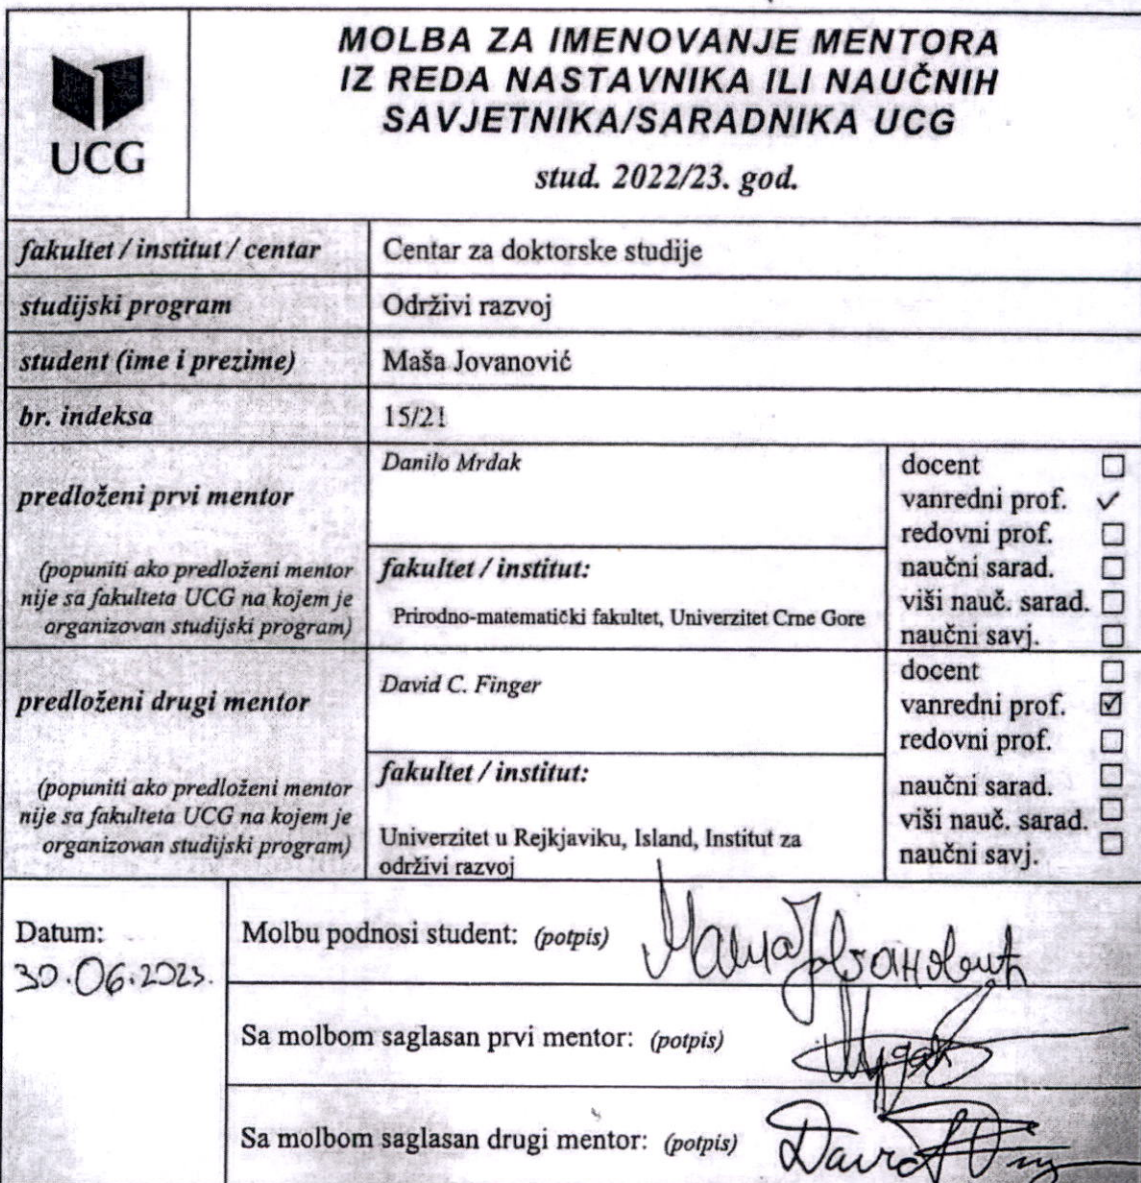 UCG
MOLBA ZA IMENOVANJE MENTORA
IZ REDA NASTAVNIKA ILI NAUČNIH
SAVJETNIKA/SARADNIKA UCG
stud. 2022/23. god.
fakultet / institut / centar
Centar za doktorske studije
studijski program
Održivi razvoj
student (ime i prezime)
Maša Jovanović
br. indeksa
15/21
predloženi prvi mentor
(popuniti ako predloženi mentor
nije sa fakulteta UCG na kojem je
organizovan studijski program)
Danilo Mrdak
fakultet / institut:
Prirodno-matematički fakultet, Univerzitet Crne Gore
docent ☐
vanredni prof. ✓
redovni prof. ☐
naučni sarad. ☐
viši nauč. sarad. ☐
naučni savj. ☐
predloženi drugi mentor
(popuniti ako predloženi mentor
nije sa fakulteta UCG na kojem je
organizovan studijski program)
David C. Finger
fakultet / institut:
Univerzitet u Rejkjaviku, Island, Institut za
održivi razvoj
docent ☐
vanredni prof. ☑
redovni prof. ☐
naučni sarad. ☐
viši nauč. sarad. ☐
naučni savj. ☐
Datum:
30.06.2023.
Molbu podnosi student: (potpis) Маша Јовановић
Sa molbom saglasan prvi mentor: (potpis)
Sa molbom saglasan drugi mentor: (potpis) David